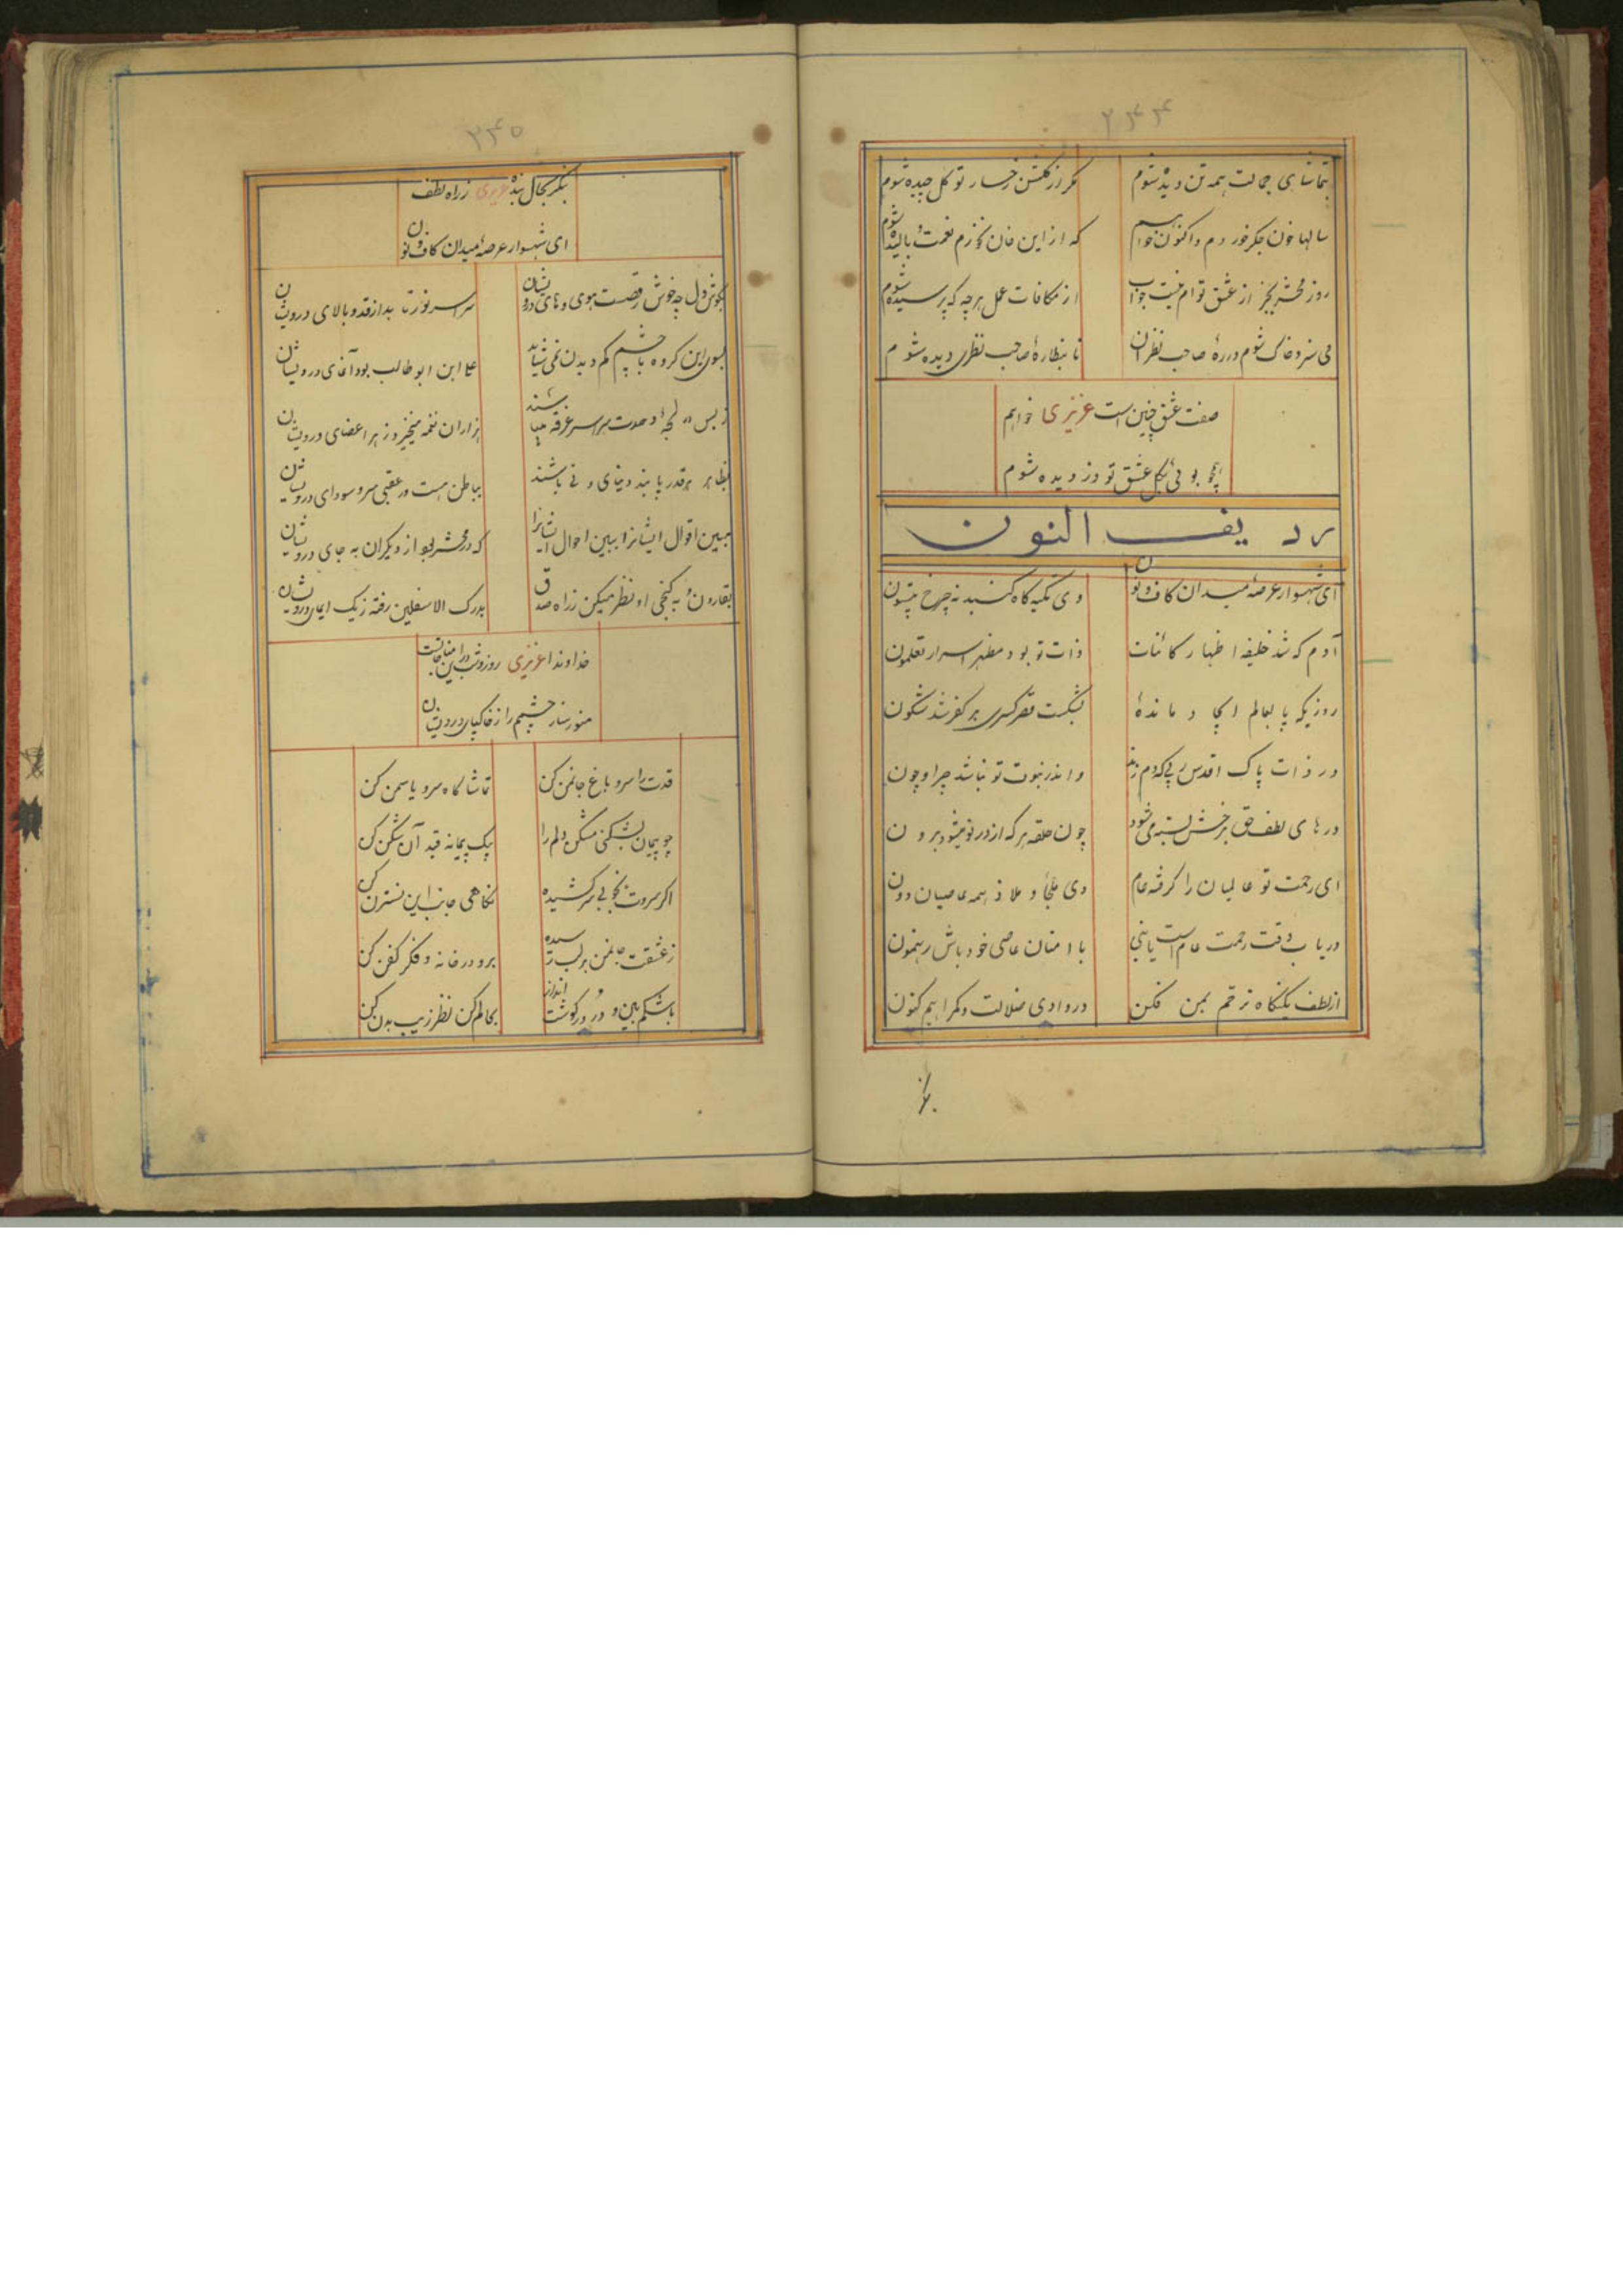 ۲۴۴
بتماشای جمالت همه تن دیده شوم
مگر از گلشن رخسار تو گل چیده شوم
سالها خون جگر خوردم و اکنون خواهم
که از این خان نعمت بالیده شوم
روز محشر بجز از عشق توام نیست جواب
از مکافات عمل هرچه که پرسیده شوم
می سزد خاک شوم در ره صاحب نظران
تا بنظارهٔ صاحب نظری دیده شوم
صفت عشق چنین است عزیزی خواهم
همچو بوئی گل عشق تو دزدیده شوم
ردیف النون
ای شهسوار عرصهٔ میدان کاف و نون
وی تکیه گاه گنبد نه چرخ بیستون
آدم که شد خلیفه اظهار کائنات
ذات تو بود مظهر اسرار تعلمون
روزیکه پا بعالم
بشکست قصر کسری هر کفر شد نگون
در ذات پاک اقدس
و اندر نبوت تو نباشد چرا و چون
درهای لطف حق برخش بسته می شود
چون حلقه هر که از در تو میشود برون
ای رحمت تو عالمیان را گرفته عام
وی ملجأ و ملاذ همه عاصیان دون
دریاب وقت رحمت عام است یا نبی
با امتان عاصی خود باش رهنمون
از لطف یکنگاه ترحم بمن فکن
در وادی ضلالت و گمراهیم کنون
۲۴۵
بنگر بحال بندهٔ عزیزی ز راه لطف
ای شهسوار عرصهٔ میدان کاف و نون
بگوش دل چه خوش رقصست هوی و های درویشان
سراسر نور بد از قد و بالای درویشان
بسوی این گروه با چشم کم دیدن نمی شاید
علی ابن ابوطالب بود آغای درویشان
ز بس در لجهٔ وحدت سراسر غرقه میباشند
هزاران نغمه میخیزد ز هر اعضای درویشان
بظاهر هر قدر پابند دنیای دنی باشند
بباطن هست در عقبی سر و سودای درویشان
ببین اقوال ایشانرا ببین احوال ایشانرا
که در محشر بود از دیگران به جای درویشان
بقارون و به گنج او نظر میکن ز راه صدق
بدرک الاسفلین رفته ز یک ایمای درویشان
خداوندا عزیزی روز و شب این مناجاتست
منور ساز چشمم را ز خاکپای درویشان
قدت را سرو باغ جان من کن
تماشاگاه سرو یاسمن کن
چو پیمان بشکنی مشکن دلم را
بیک پیمانه قید آن شکن کن
اگر سروت بخوبی سر کشیده
نگاهی جانب این نسترن کن
ز عشقت جانمن بر لب رسیده
برو در خانه و فکر کفن کن
باشکم بین و در در گوشت انداز
بحالم کن نظر زیب بدن کن